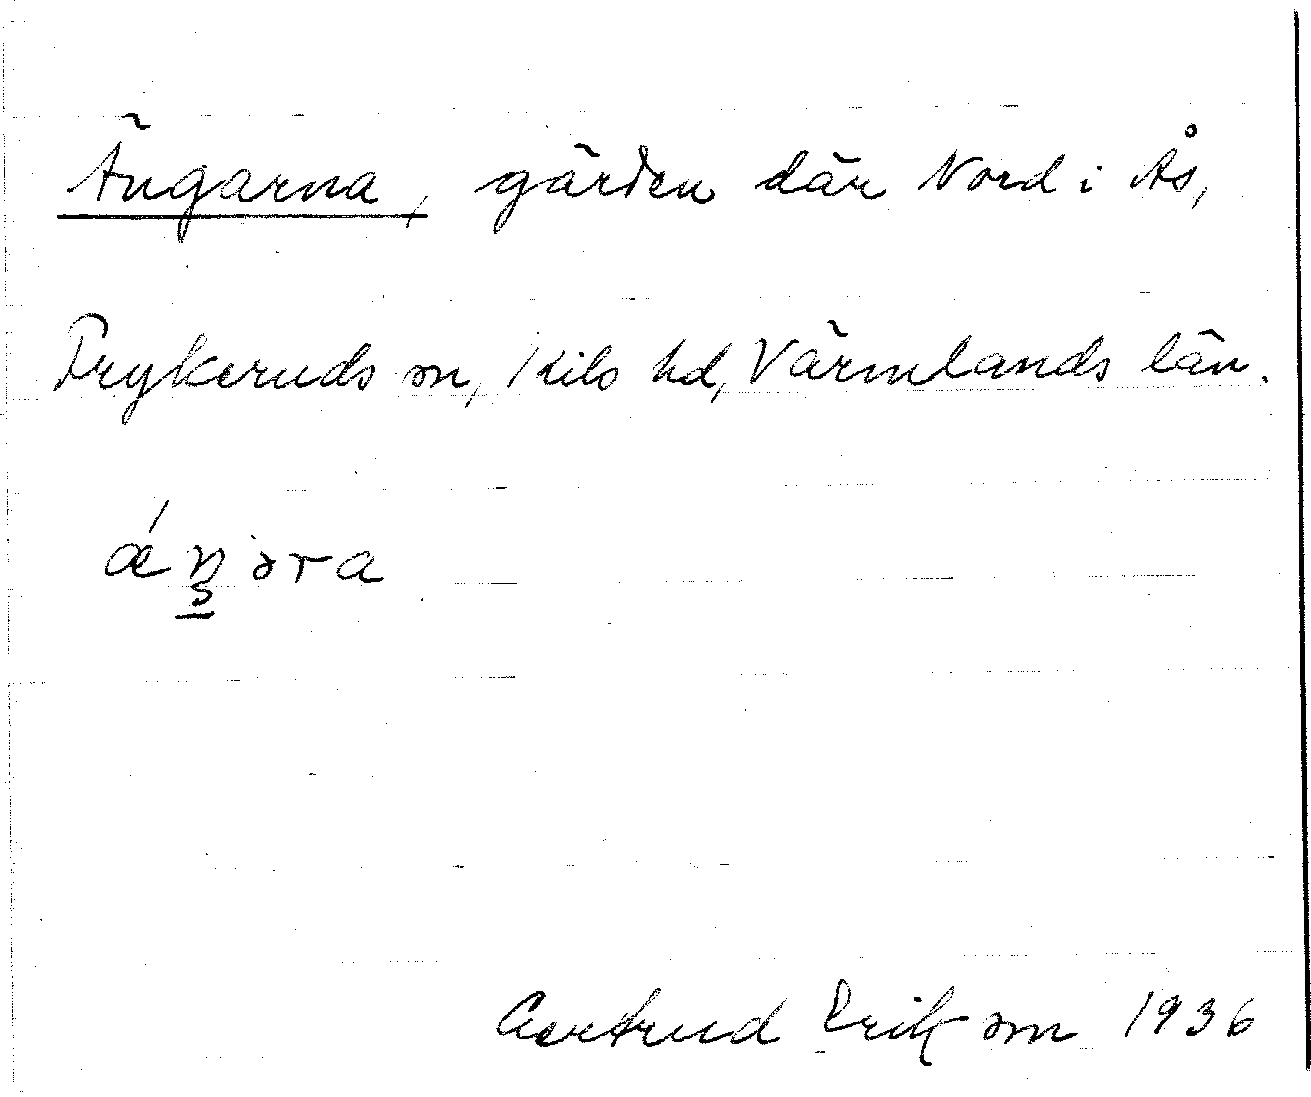 Ängarna, gärden där Nord i Ås,
Frykeruds sn, Kils hd, Värmlands län.
ǽŋəra
Gertrud Erikson 1936